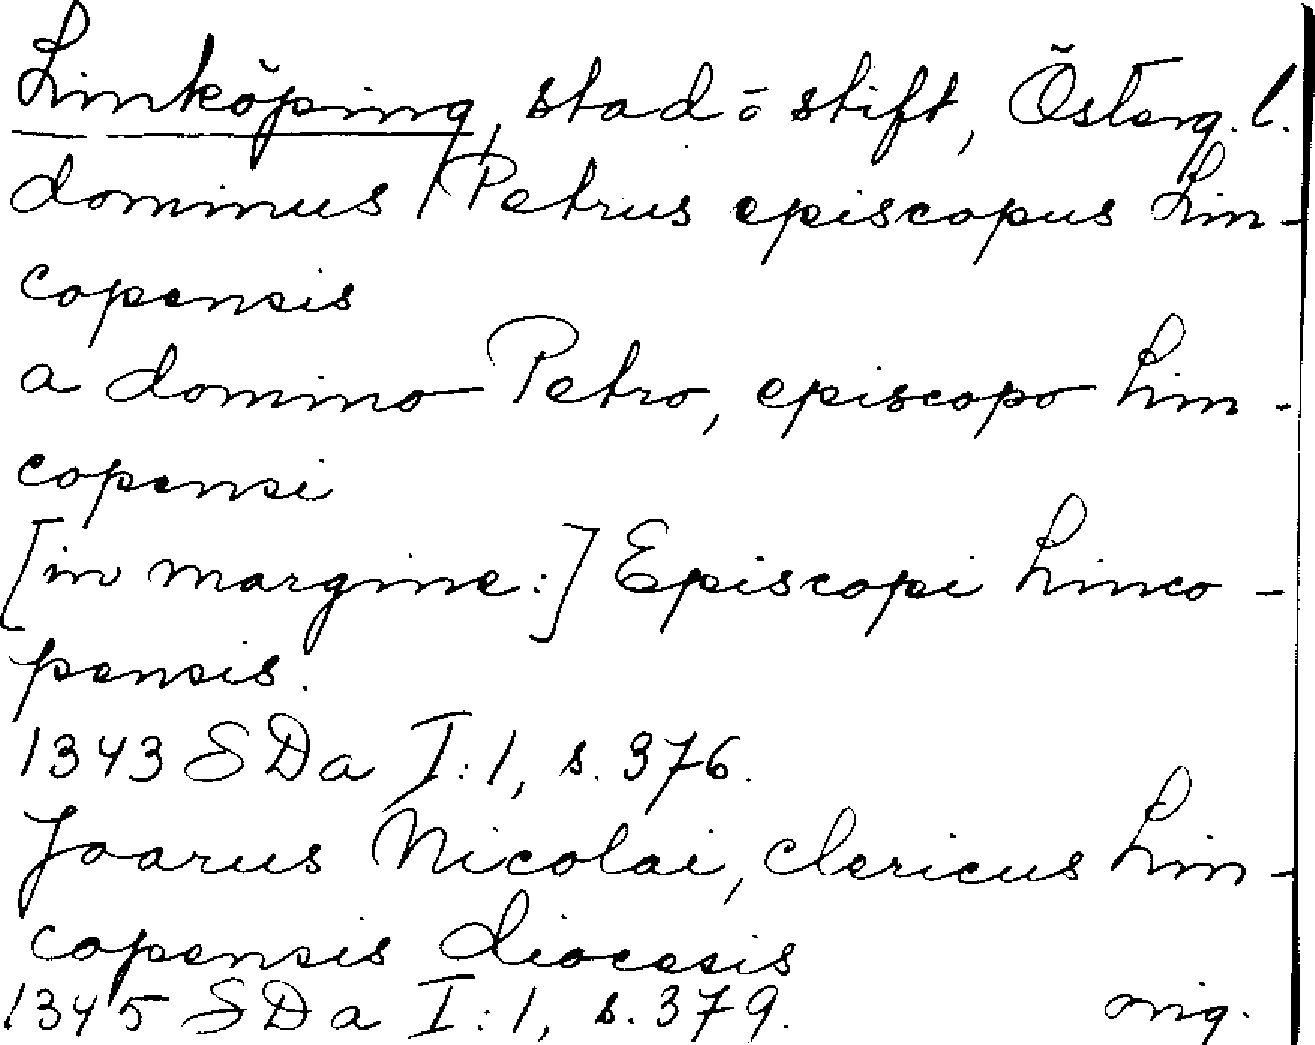 Linköping, stad o stift, Österg. l.
dominus Petrus episcopus Lin-
copensis
a domino Petro, episcopo Lin-
copensi
[in margine:] Episcopi Linco-
pensis.
1343 SDa I:1, s. 376.
Joarus Nicolai, clericus Lin-
copensis diocesis
1345 SDa I:1, s. 379. orig.